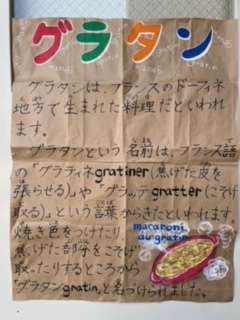 グラタン
グラタンは、フランスのドーフィネ
地方で生まれた料理だといわれ
ます。
グラタンという名前は、フランス語
の「グラティネgratiner(焦げた皮を
張らせる)」や「グラッテgratter(こそげ
取る)」という言葉からきたといわれます。
焼き色をつけたり、
焦げた部分をこそげ
取ったりするところから
「グラタンgratin」と名づけられました。
macaroni
au gratin